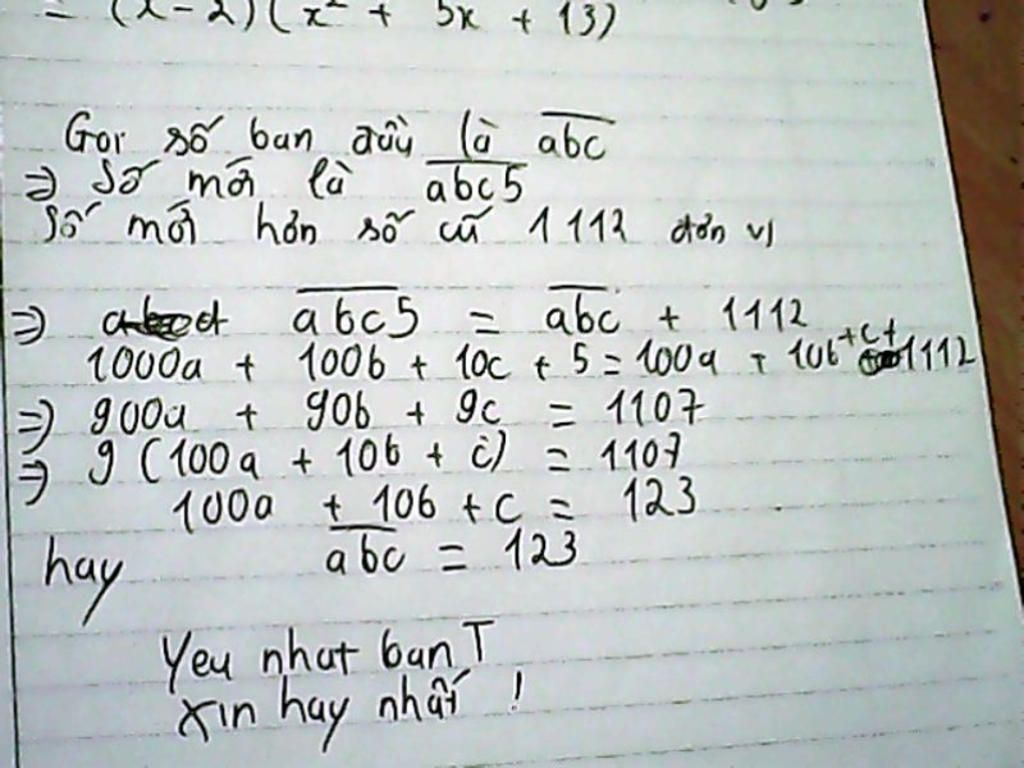 = (x - 2)(x² + 5x + 13)
Gọi số ban đầu là abc
=> Số mới là abc5
Số mới hơn số cũ 1112 đơn vị
=> abc5 = abc + 1112
1000a + 100b + 10c + 5 = 100a + 10b + c + 1112
=> 900a + 90b + 9c = 1107
=> 9(100a + 10b + c) = 1107
100a + 10b + c = 123
hay abc = 123
Yeu nhat ban T
Xin hay nhất !